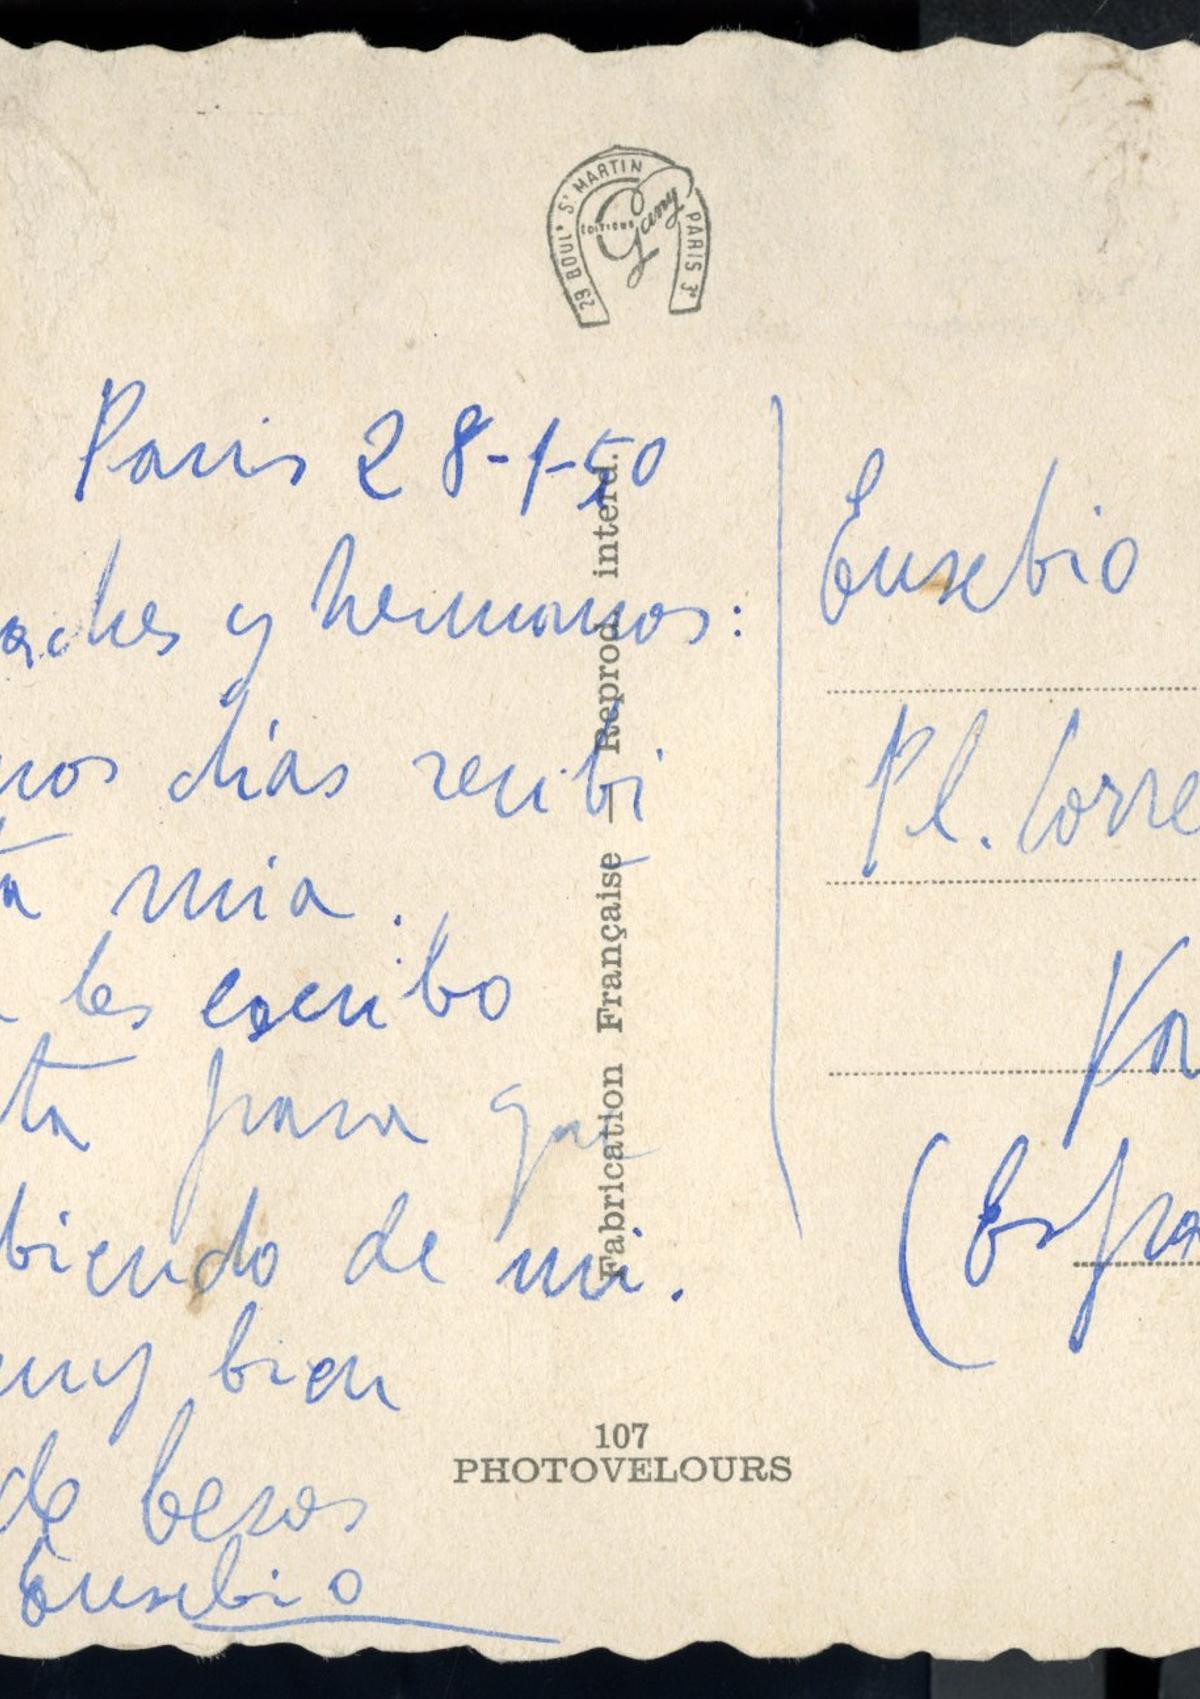 29 BOULᵈ Sᵗ MARTIN PARIS 3ᵉ
EDITIONS Gany
Paris 28-1-50
y hermanos:
nos dias recibi
mia.
les escribo
ta para que
biendo de mi.
muy bien
de besos
Eusebio
Fabrication Française — Reprod. interd.
107
PHOTOVELOURS
Eusebio
Pl. Corre
(Espa